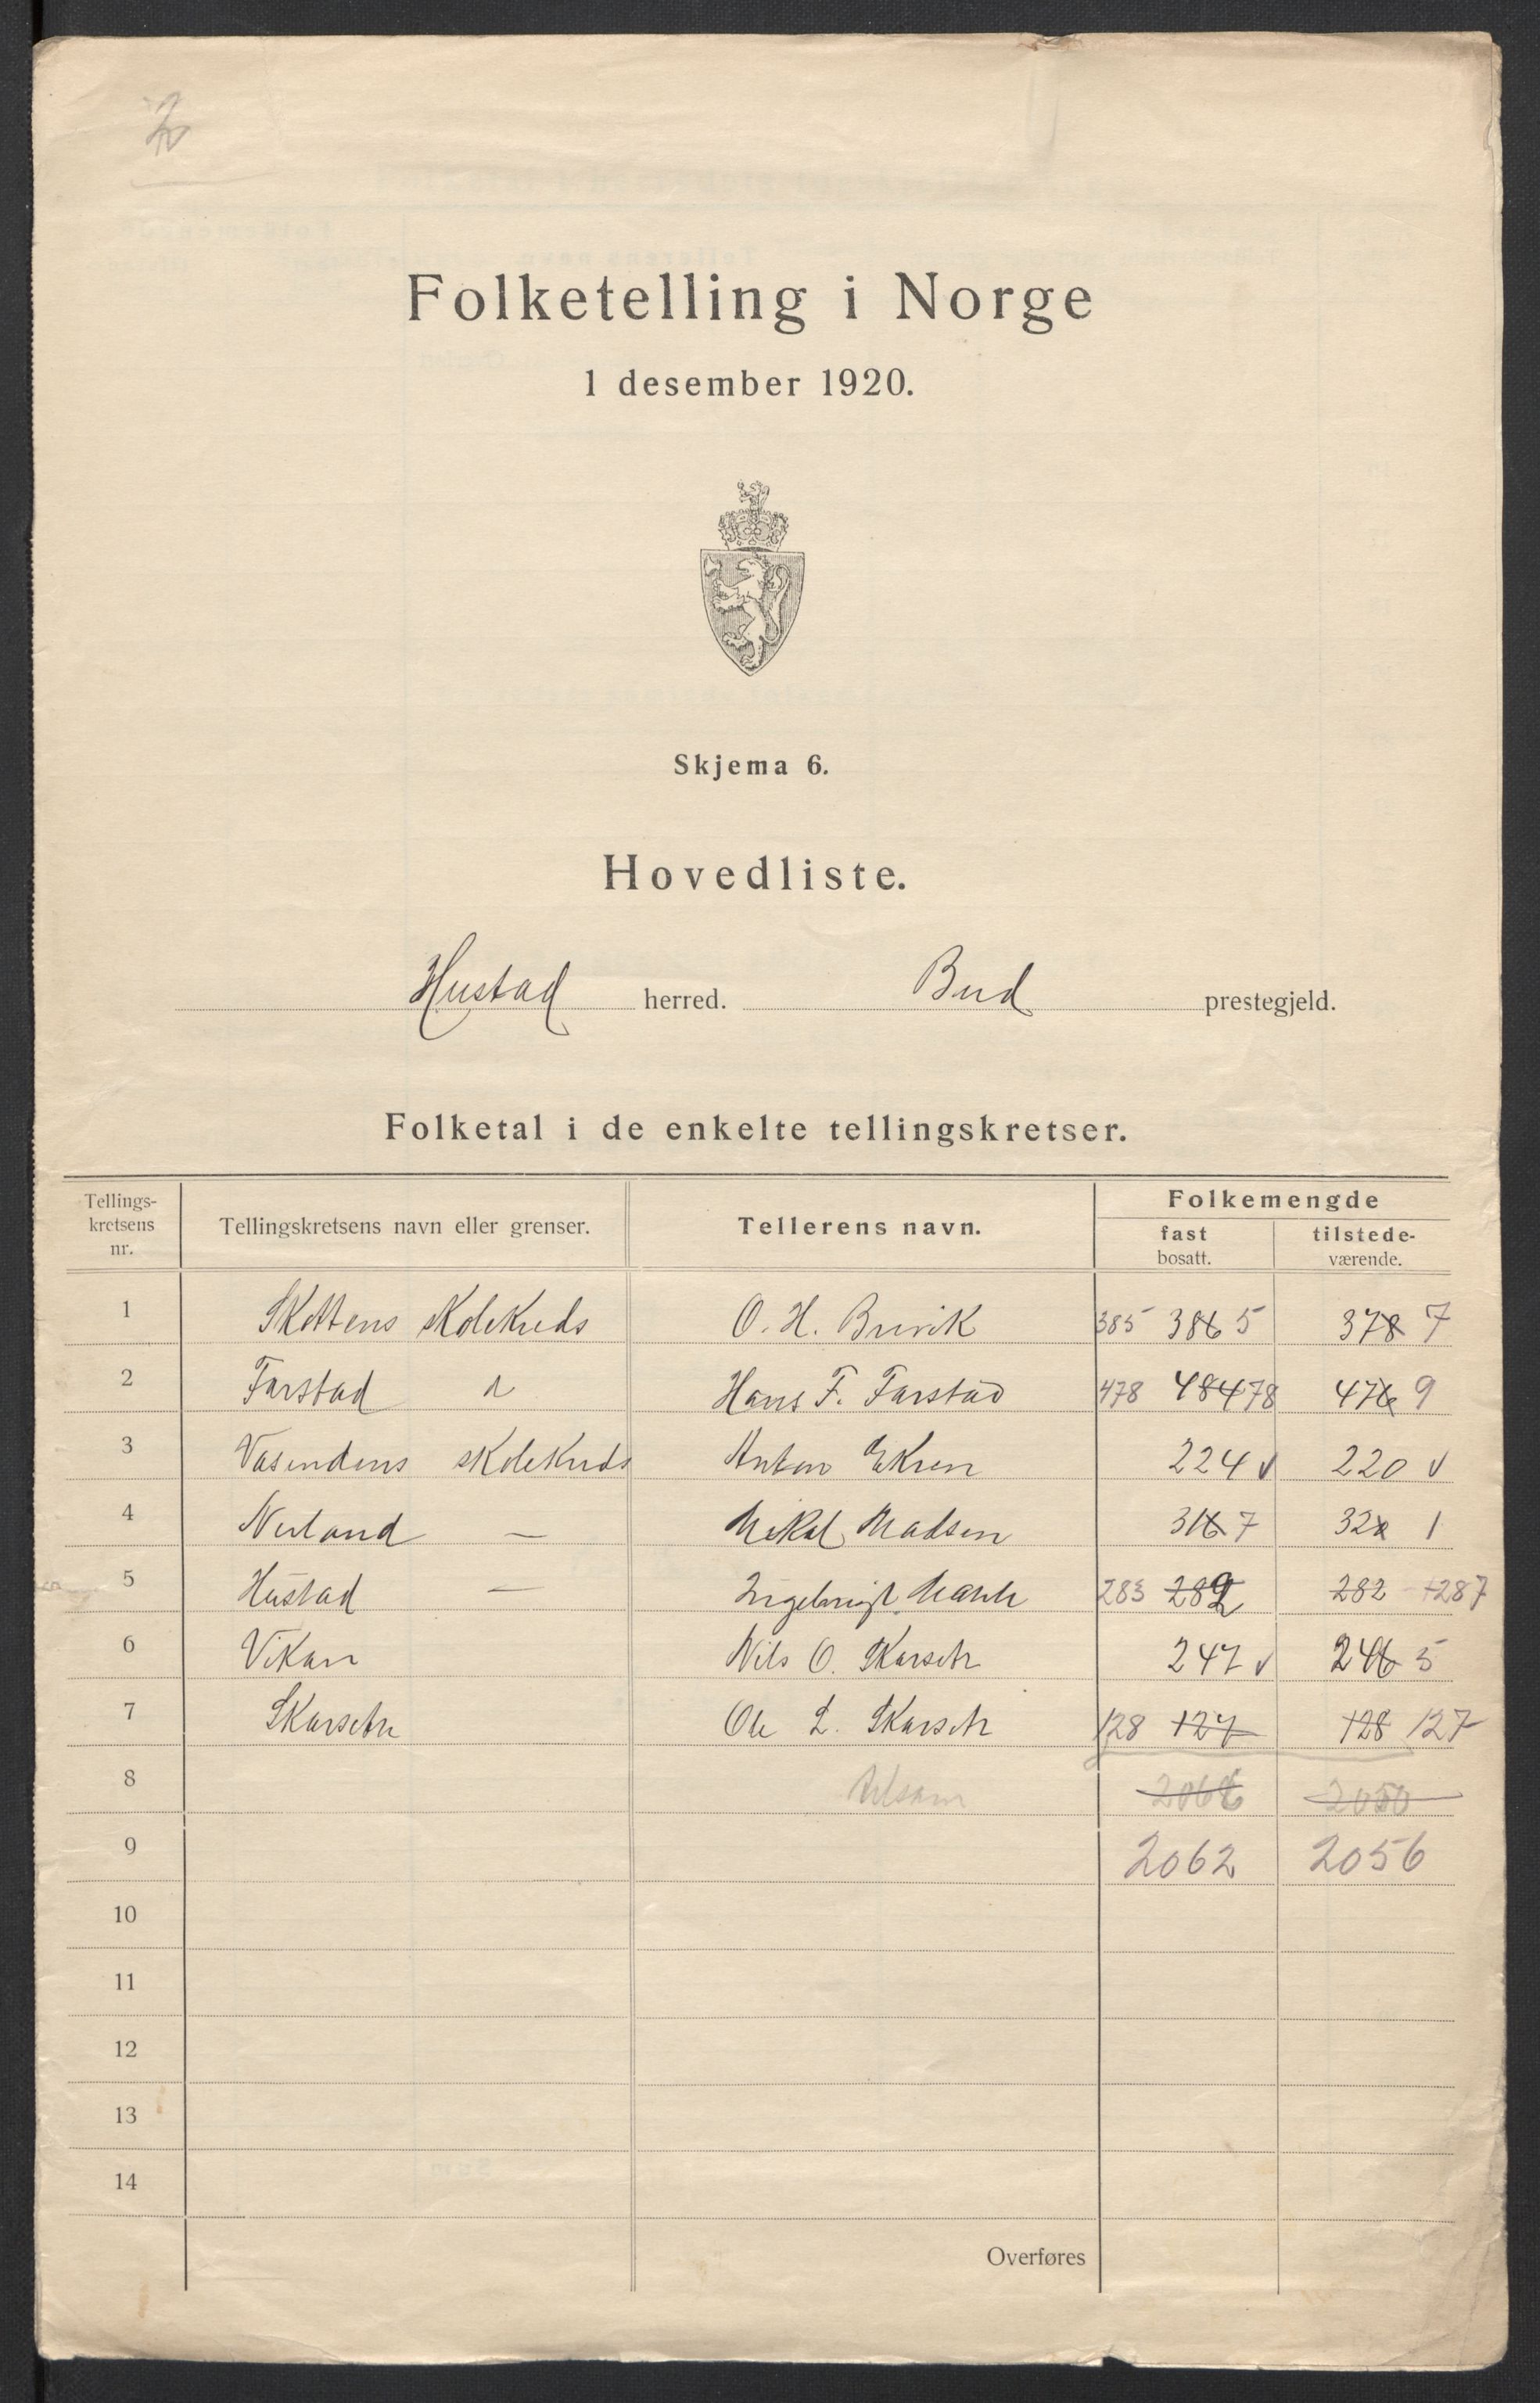 2
Folketelling i Norge
1 desember 1920.
Skjema 6.
Hovedliste.
Hustad herred. Bud prestegjeld.
Folketal i de enkelte tellingskretser.
Tellings-
kretsens
nr.
Tellingskretsens navn eller grenser.
Tellerens navn.
Folkemengde
fast
bosatt.
tilstede-
værende.
1 Skottens skolekreds O. H. Bruvik 385 386 5 378 7
2 Farstad Hans F. Farstad 478 484 78 476 9
3 Vasendens skolekreds Anton Ekren 224 v 220 v
4 Nerland — Mikal Madsen 316 7 320 1
5 Hustad — Ingebrigt 283 282 282 287
6 Vikan Nils O. Skarseth 247 v 246 5
7 Skarseth Ole L. Skarseth 128 127 128 127
8 Tilsam 2066 2050
9 2062 2056
10
11
12
13
14
Overføres